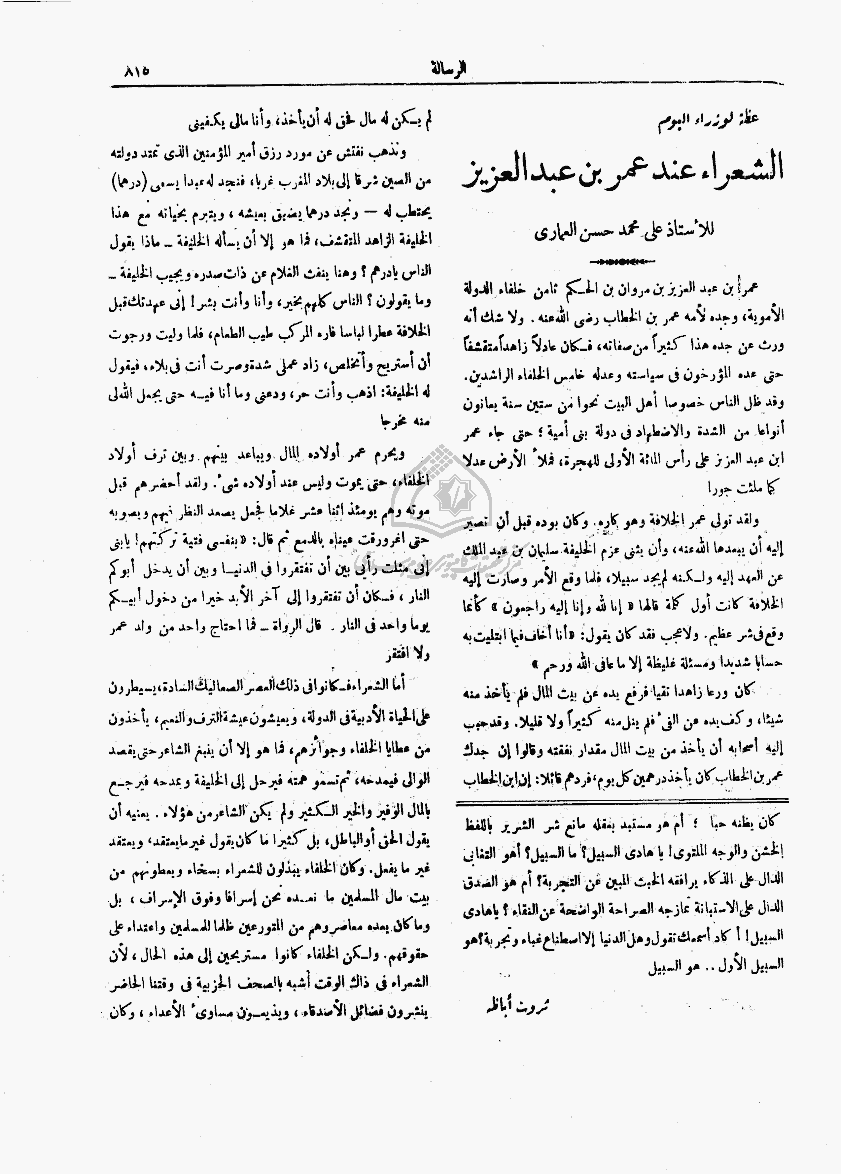 الرسالة
٨١٥
عظة لوزراء اليوم
الشعراء عند عمر بن عبد العزيز
للأستاذ على محمد حسن العمارى
عمر بن عبد العزيز بن مروان بن الحكم ثامن خلفاء الدولة
الأموية، وجده لأمه عمر بن الخطاب رضى الله عنه . ولا شك أنه
ورث عن جده هذا كثيراً من صفاته، فكان عادلاً زاهداً متقشفاً
حتى عده المؤرخون فى سياسته وعدله خامس الخلفاء الراشدين.
وقد ظل الناس خصوصا أهل البيت نحوا من ستين سنة يعانون
أنواعا من الشدة والاضطهاد فى دولة بنى أمية ؛ حتى جاء عمر
ابن عبد العزيز على رأس المائة الأولى للهجرة، فملأ الأرض عدلا
كما ملئت جورا
ولقد تولى عمر الخلافة وهو كاره. وكان بوده قبل أن تصير
إليه أن يبعدها الله عنه، وأن يثنى عزم الخليفة سليمان بن عبد الملك
عن العهد إليه ولكنه لم يجد سبيلا، فلما وقع الأمر وصارت إليه
الخلافة كانت أول كلمة قالها « إنا لله وإنا إليه راجعون » كأنما
وقع فى شر عظيم. ولا عجب فقد كان يقول: «أنا أخاف فيما ابتليت به
حسابا شديدا ومسئلة غليظة إلا ما عافى الله ورحم »
كان ورعا زاهدا نقيا فرفع يده عن بيت المال فلم يأخذ منه
شيئا، وكف يده عن الفىء فلم ينل منه كثيراً ولا قليلا. وقد حبب
إليه أصحابه أن يأخذ من بيت المال مقدار نفقته وقالوا إن جدك
عمر بن الخطاب كان يأخذ درهمين كل يوم، فردهم قائلا: إن ابن الخطاب
كان يظنه حبا ؛ أم هو مستبد بعقله مانع شر الشرير باللفظ
الخشن والوجه الملتوى! يا هادى السبيل؟ ما السبيل؟ أهو التغابى
الدال على الذكاء يرافقه الخبث المبين عن التجربة؟ أم هو الصدق
الدال على الاستبانة تمازجه الصراحة الواضحة عن النقاء ؟ يا هادى
السبيل! أكاد أسمعك تقول وهل الدنيا إلا اصطناع غباء وتجربة؟ هو
السبيل الأول .. هو السبيل
ثروت أباظه
لم يكن له مال فحق له أن يأخذ، وأنا مالى يكفينى
ونذهب نفتش عن مورد رزق أمير المؤمنين الذى تمتد دولته
من الصين شرقا إلى بلاد المغرب غربا، فنجد له عبدا يسمى (درهما)
يحتطب له — ونجد درهما يضيق بعيشه ، ويتبرم بحياته مع هذا
الخليفة الزاهد المتقشف، فما هو إلا أن يسأله الخليفة ــ ماذا يقول
الناس يا درهم ؟ وهنا ينفث الغلام عن ذات صدره ويجيب الخليفة ــ
وما يقولون ؟ الناس كلهم بخير، وأنا وأنت بشر! إنى عهدتك قبل
الخلافة عطرا لباسا فاره المركب طيب الطعام، فلما وليت ورجوت
أن أستريح وأتخلص، زاد عملى شدة وصرت أنت فى بلاء، فيقول
له الخليفة: اذهب وأنت حر، ودعنى وما أنا فيه حتى يجعل الله لى
منه مخرجا
ويحرم عمر أولاده المال ويباعد بينهم وبين ترف أولاد
الخلفاء، حتى يموت وليس عند أولاده شىء. ولقد أحضرهم قبل
موته وهم يومئذ اثنا عشر غلاما فجعل يصعد النظر فيهم ويصوبه
حتى اغرورقت عيناه بالدمع ثم قال: «بنفسى فتية تركتهم! يا بنى
إنى مثلت رأيى بين أن تفتقروا فى الدنيا وبين أن يدخل أبوكم
النار ، فكان أن تفتقروا إلى آخر الأبد خيرا من دخول أبيكم
يوما واحد فى النار . قال الرواة ــ فما احتاج واحد من ولد عمر
ولا افتقر
أما الشعراء فكانوا فى ذلك العصر الصعاليك السادة، يسيطرون
على الحياة الأدبية فى الدولة، ويعيشون عيشة الترف والنعيم، يأخذون
من عطايا الخلفاء وجوائزهم، فما هو إلا أن ينبغ الشاعر حتى يقصد
الوالى فيمدحه، ثم تسمو همته فيرحل إلى الخليفة ويمدحه فيرجع
بالمال الوفير والخير الكثير ولم يكن الشاعر من هؤلاء . يعنيه أن
يقول الحق أو الباطل، بل كثيرا ما كان يقول غير ما يعتقد، ويعتقد
غير ما يفعل. وكان الخلفاء يبذلون للشعراء بسخاء ويعطونهم من
بيت مال المسلمين ما نعده نحن إسرافا وفوق الإسراف ، بل
وما كان يعده معاصروهم من المتورعين ظلما للمسلمين واعتداء على
حقوقهم. ولكن الخلفاء كانوا مستريحين إلى هذه الحال، لأن
الشعراء فى ذاك الوقت أشبه بالصحف الحزبية فى وقتنا الحاضر
ينشرون فضائل الأصدقاء ، ويذيعون مساوىء الأعداء ، وكان